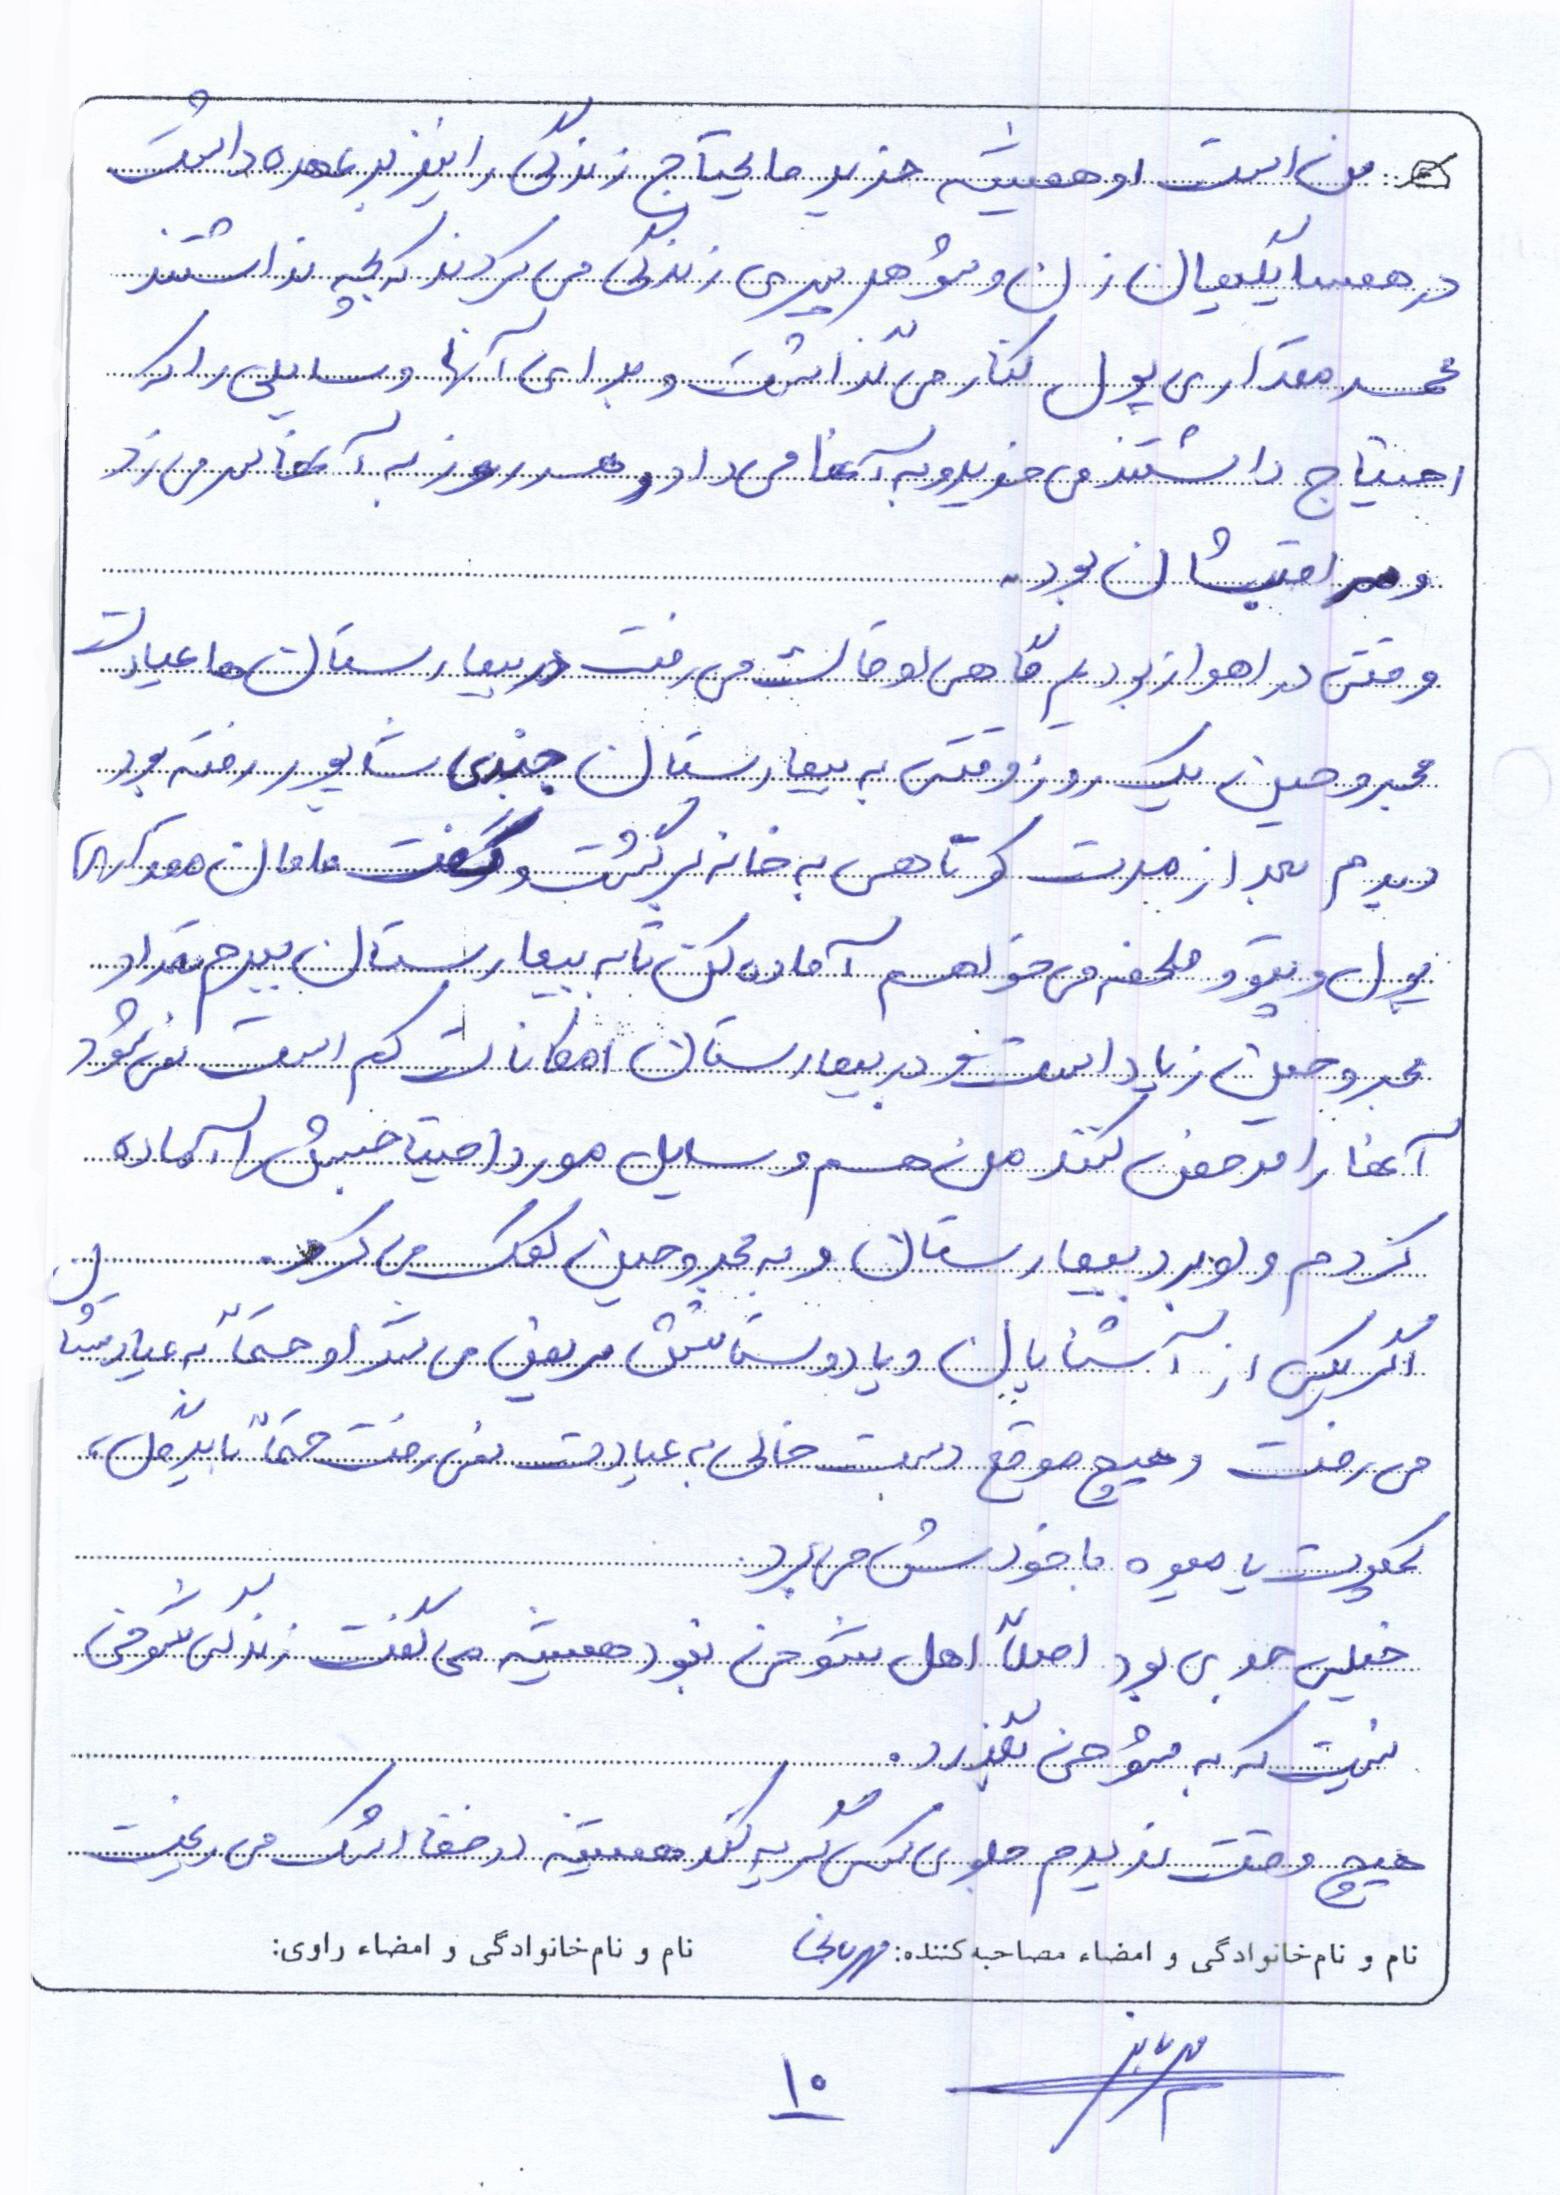 من است او همیشه خرید مایحتاج زندگی را نیز بر عهده داشت
در همسایگیمان زن و شوهر پیری زندگی می کردند که بچه نداشتند
محمد مقداری پول کنار می گذاشت و برای آنها وسایلی را که
احتیاج داشتند می خرید و به آنها می داد و هر روز به آنها سر می زد
و مراقبشان بود.
وقتی در اهواز بودیم گاهی اوقات می رفت در بیمارستان ها عیادت
مجروحین یک روز وقتی به بیمارستان جندی شاپور رفته بود
دیدم بعد از مدت کوتاهی به خانه برگشت و گفت مامان مقداری
پول و پتو و ملحفه می خواهم آماده کن تا به بیمارستان ببرم تعداد
مجروحین زیاد است و در بیمارستان امکانات کم است نمی شود
آنها را مرخص کنند من هم وسایل مورد احتیاجش را آماده
کردم و او برد بیمارستان و به مجروحین کمک می کرد.
اگر یکی از آشنایان و یا دوستانش مریض می شد او حتماً به عیادتشان
می رفت و هیچ موقع دست خالی به عیادت نمی رفت حتماً باید گل،
کمپوت یا میوه با خودش می برد.
خیلی جدی بود اصلاً اهل شوخی نبود همیشه می گفت زندگی شوخی
نیست که به شوخی بگذرد.
هیچ وقت ندیدم جلوی کسی گریه کند همیشه در خفا اشک می ریخت
نام و نام خانوادگی و امضاء مصاحبه کننده: مهربانی نام و نام خانوادگی و امضاء راوی:
۱۰